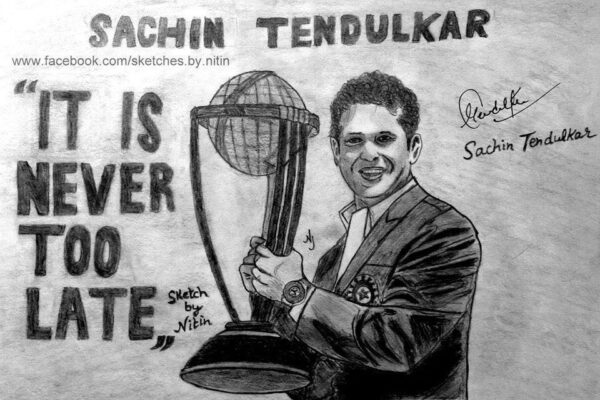 SACHIN TENDULKAR
www.facebook.com/sketches.by.nitin
"IT IS
NEVER
TOO
LATE"
Sketch
by
Nitin
NJ
Sachin Tendulkar